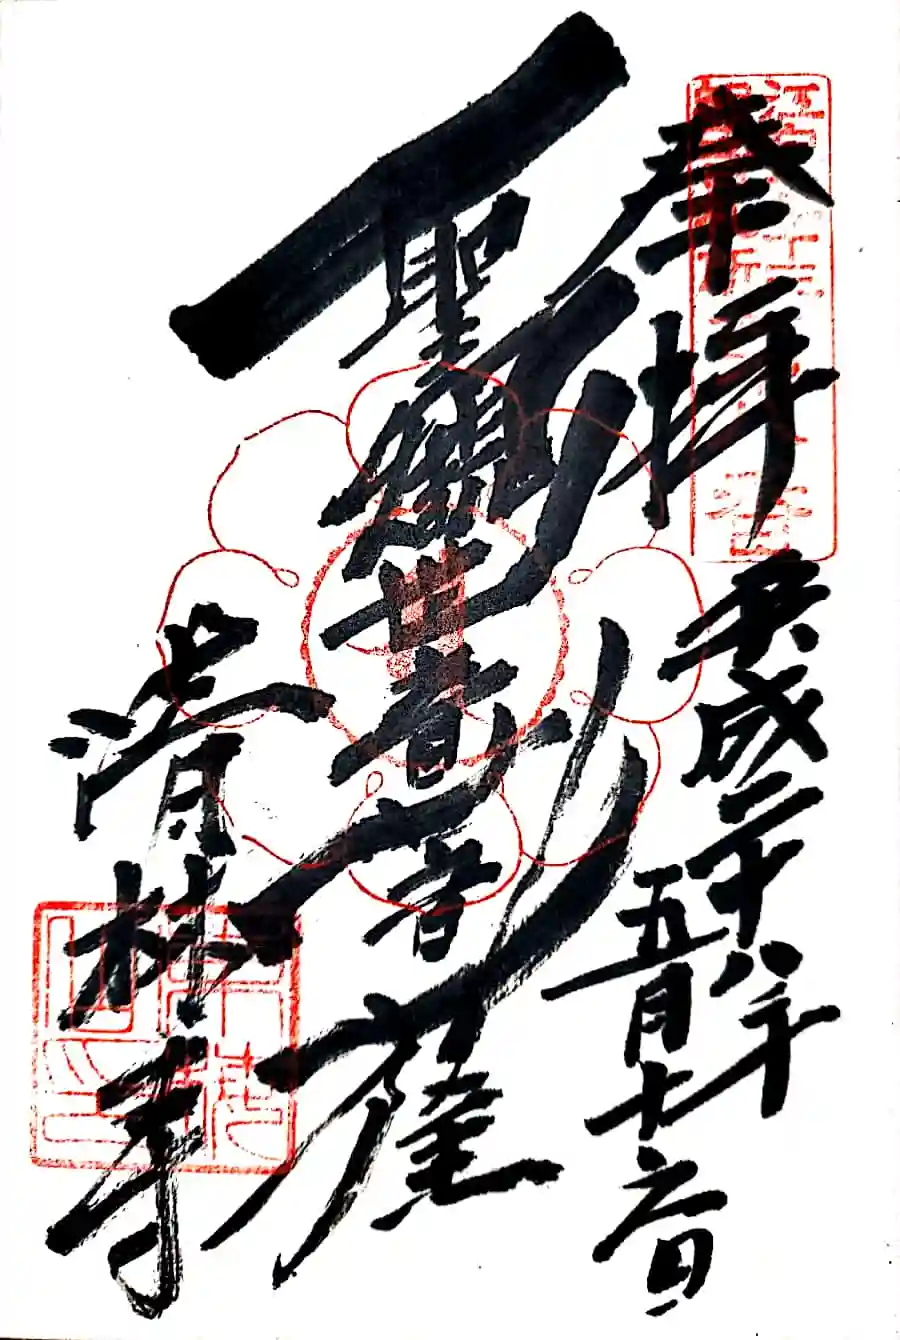 奉拝
平成二十八年
五月十六日
聖観世音菩薩
清林寺